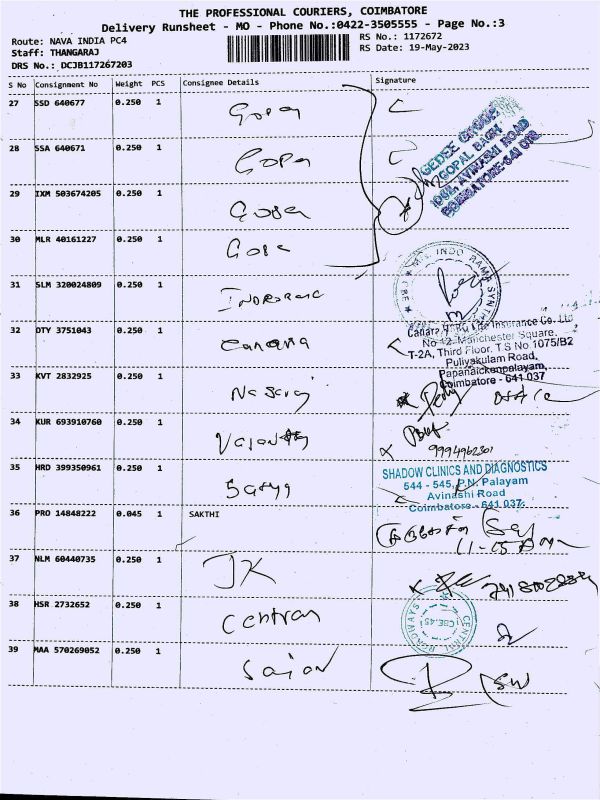 THE PROFESSIONAL COURIERS, COIMBATORE
Delivery Runsheet - MO - Phone No.:0422-3505555 - Page No.:3
Route: NAVA INDIA PC4
RS No.: 1172672
Staff: THANGARAJ
RS Date: 19-May-2023
DRS No.: DCJB117267203
S No Consignment No Weight PCS Consignee Details Signature
27 SSD 640677 0.250 1 Gopa
28 SSA 640671 0.250 1 Gopa
GEDEE
GOPAL BAGH
AVINASHI ROAD
COIMBATORE-641 018
29 IXM 503674205 0.250 1 Gopa
30 MLR 40161227 0.250 1 Gopa
31 SLM 320024809 0.250 1
INDO RAMA
CBE
32 DTY 3751043 0.250 1 Canara
Canara HSBC Life Insurance Co. Ltd
No 12, Manchester Square,
T-2A, Third Floor, T.S No.1075/B2
Puliyakulam Road,
Papanaickenpalayam,
Coimbatore - 641 037
33 KVT 2832925 0.250 1 Nagaraj
34 KUR 693910760 0.250 1
35 HRD 399350961 0.250 1 Sarya
SHADOW CLINICS AND DIAGNOSTICS
544 - 545, P.N. Palayam
Avinashi Road
Coimbatore - 641 037.
36 PRO 14848222 0.045 1 SAKTHI
37 NLM 60440735 0.250 1 JK
38 HSR 2732652 0.250 1 Central
CENTRAL ROADWAYS
CBE-45
39 MAA 570269052 0.250 1 Sajan